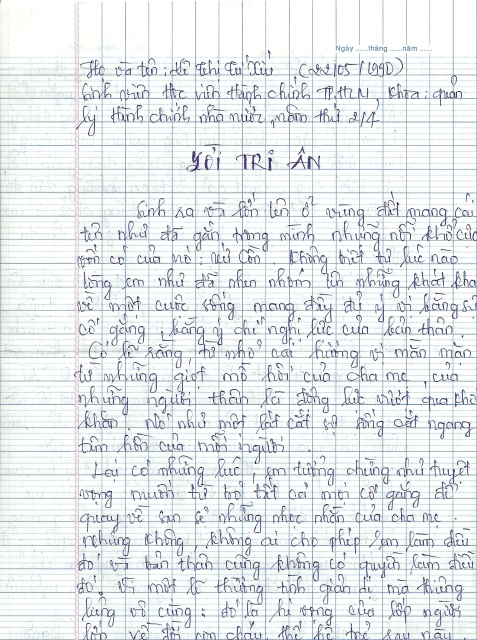 Ngày ......tháng ......năm ......
Họ và tên : Lê Thị Tú Xíu (22/05/1990)
Sinh viên Học viện Hành chính TPHCM, khoa : quản
lý Hành chính nhà nước, năm thứ 2/4
LỜI TRI ÂN
Sinh ra và lớn lên ở vùng đất mang cái
tên như đã gắn trong mình những nỗi khổ của
vốn có của nó : xứ Cồn. Không biết từ lúc nào
lòng em như đã nhen nhóm lên những khát kha
về một cuộc sống mang đầy đủ ý vị bằng sự
cố gắng, bằng ý chí nghị lực của bản thân.
Có lẽ rằng, từ nhỏ cái hương vị mằn mặn
từ những giọt mồ hôi của cha mẹ, của
những người thân là động lực vượt qua khó
khăn. Nó như một lát cắt sự sống cắt ngang
tâm hồn của mỗi người.
Lại có những lúc, em tưởng chừng như tuyệt
vọng muốn từ bỏ tất cả mọi cố gắng để
quay về san sẻ những nhọc nhằn của cha mẹ.
Nhưng không, không ai cho phép em làm điều
đó và bản thân cũng không có quyền làm điều
đó vì một lẽ thường tình giản dị mà thiêng
liêng vô cùng : đó là hi vọng của lớp người
lớn về đời con cháu, thế hệ trẻ sau này.